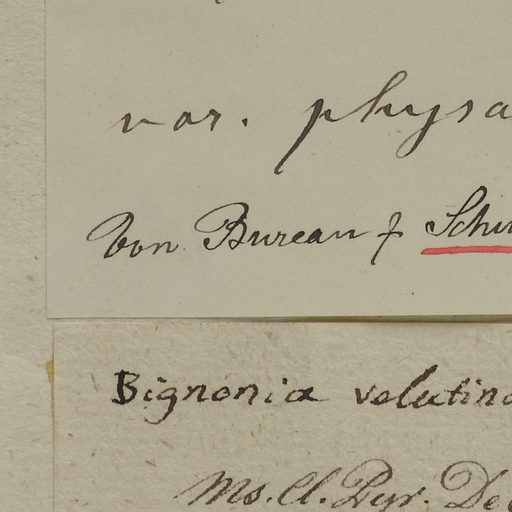 var. physa
Von Bureau f Schu
Bignonia velutina
Ms. Cl. Pyr. De